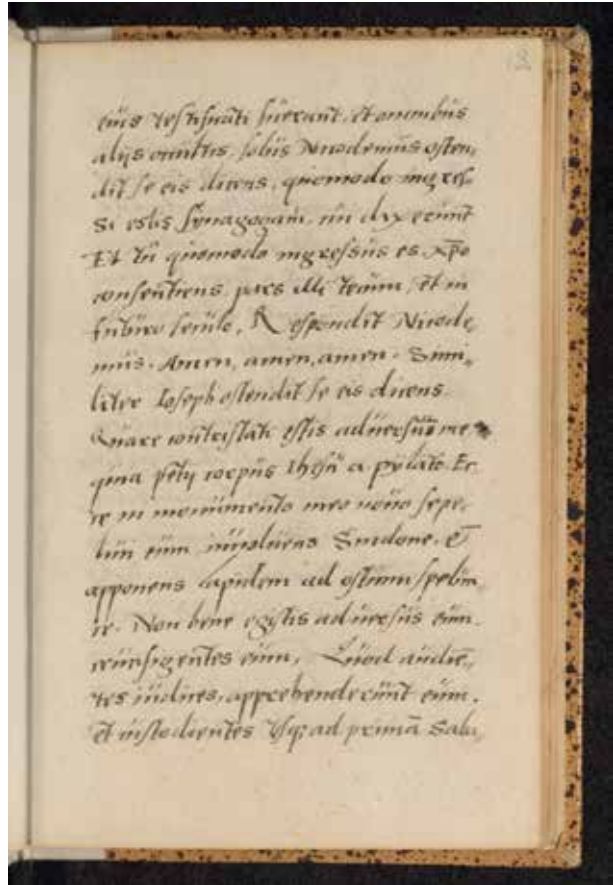 12
eius testificati fuerant, et omnibus
alijs occultis, solus Nicodemus osten,
dit se eis dicens, quomodo ingres-
si estis synagogam, cui dix erunt
Et tu quomodo ingressus es, xp̄o
consentiens, pars illi tecum, et in
futuro seculo, Respondit Nicode,
mus. Amen, amen, amen. Simi,,
liter Ioseph ostendit se eis dicens.
Quare contristati estis aduersus me
quia petij corpus Ihesū a pylato. Ec
ce in monumento meo nouo sepe,
liui eum inuoluens Sindone, et
apponens lapidem ad ostium spelun,
ce. Non bene egistis aduersus eum.
crucifigentes eum, Quod audiē,,
tes iudices, apprehenderunt eum.
et custodientes usq; ad primā Saba,